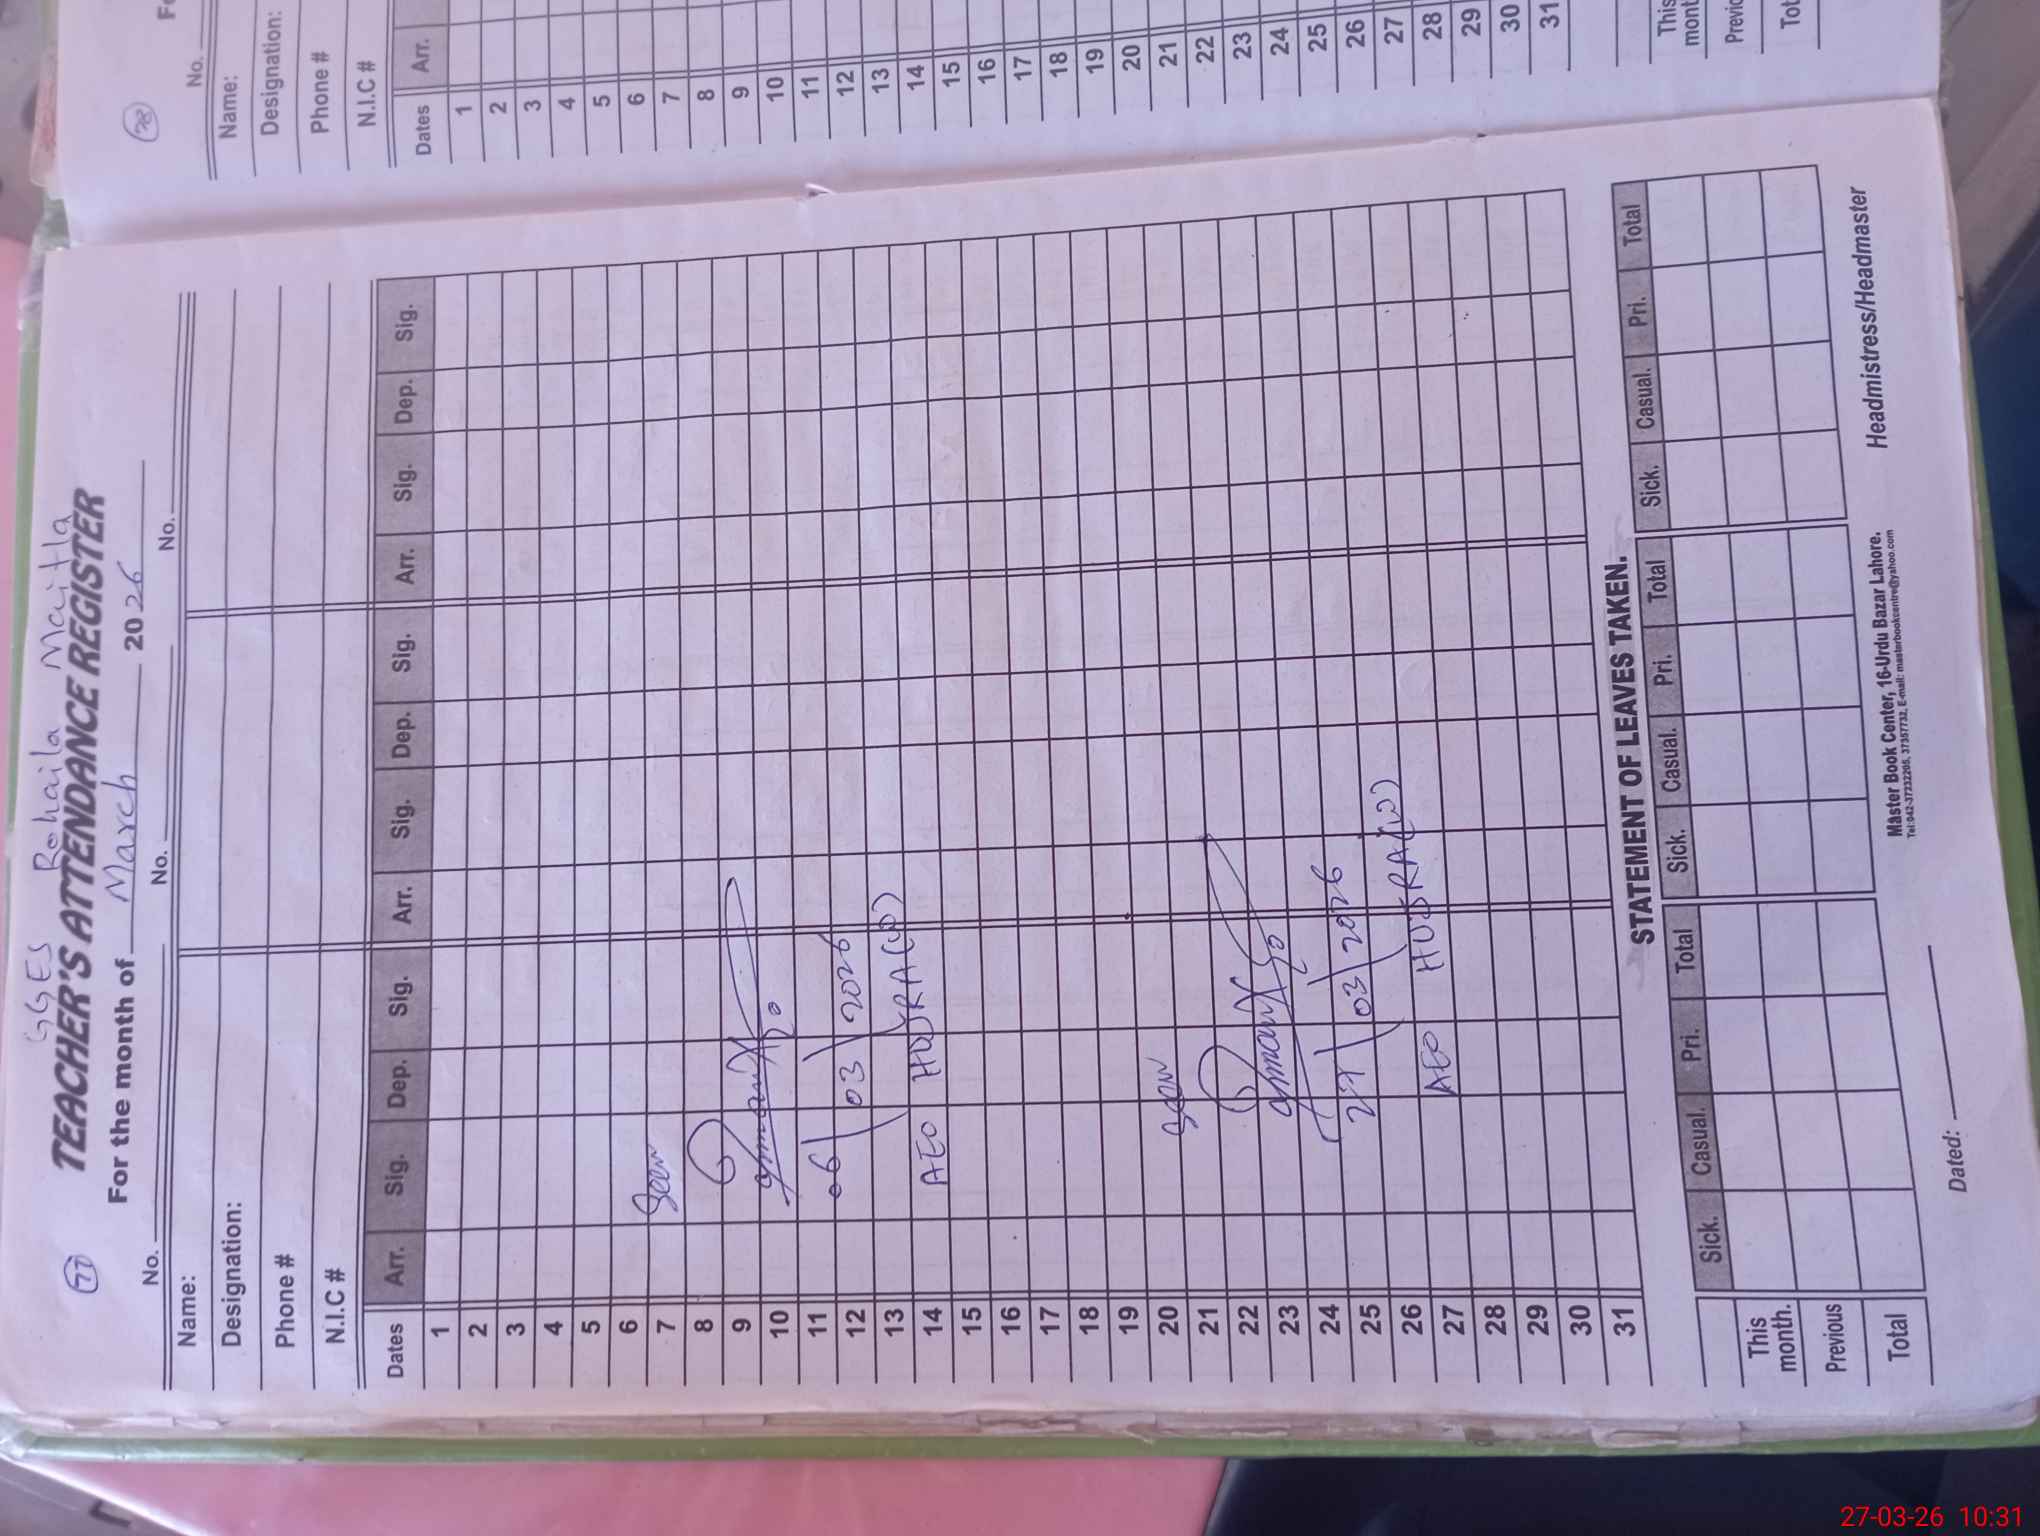 77
GGES Rohaila Maitla
TEACHER'S ATTENDANCE REGISTER
For the month of March 2026
No. No. No.
Name:
Designation:
Phone #
N.I.C #
Dates Arr. Sig. Dep. Sig. Arr. Sig. Dep. Sig. Arr. Sig. Dep. Sig.
1
2
3
4
5
6
7 Seen
8
9
10
11
12 06 03 2026
13
14 AEO HUJRA (W)
15
16
17
18
19
20 Seen
21
22
23
24
25 27 03 2026
26
27 AEO HUJRA (W)
28
29
30
31
STATEMENT OF LEAVES TAKEN.
Sick. Casual. Pri. Total Sick. Casual. Pri. Total Sick. Casual. Pri. Total
This month.
Previous
Total
Dated:
Master Book Center, 16-Urdu Bazar Lahore.
Tel:042-37232205, 37357732, E-mail: masterbookcentre@yahoo.com
Headmistress/Headmaster
78
No.
Name:
Designation:
Phone #
N.I.C #
Dates Arr.
1
2
3
4
5
6
7
8
9
10
11
12
13
14
15
16
17
18
19
20
21
22
23
24
25
26
27
28
29
30
31
This
27-03-26 10:31